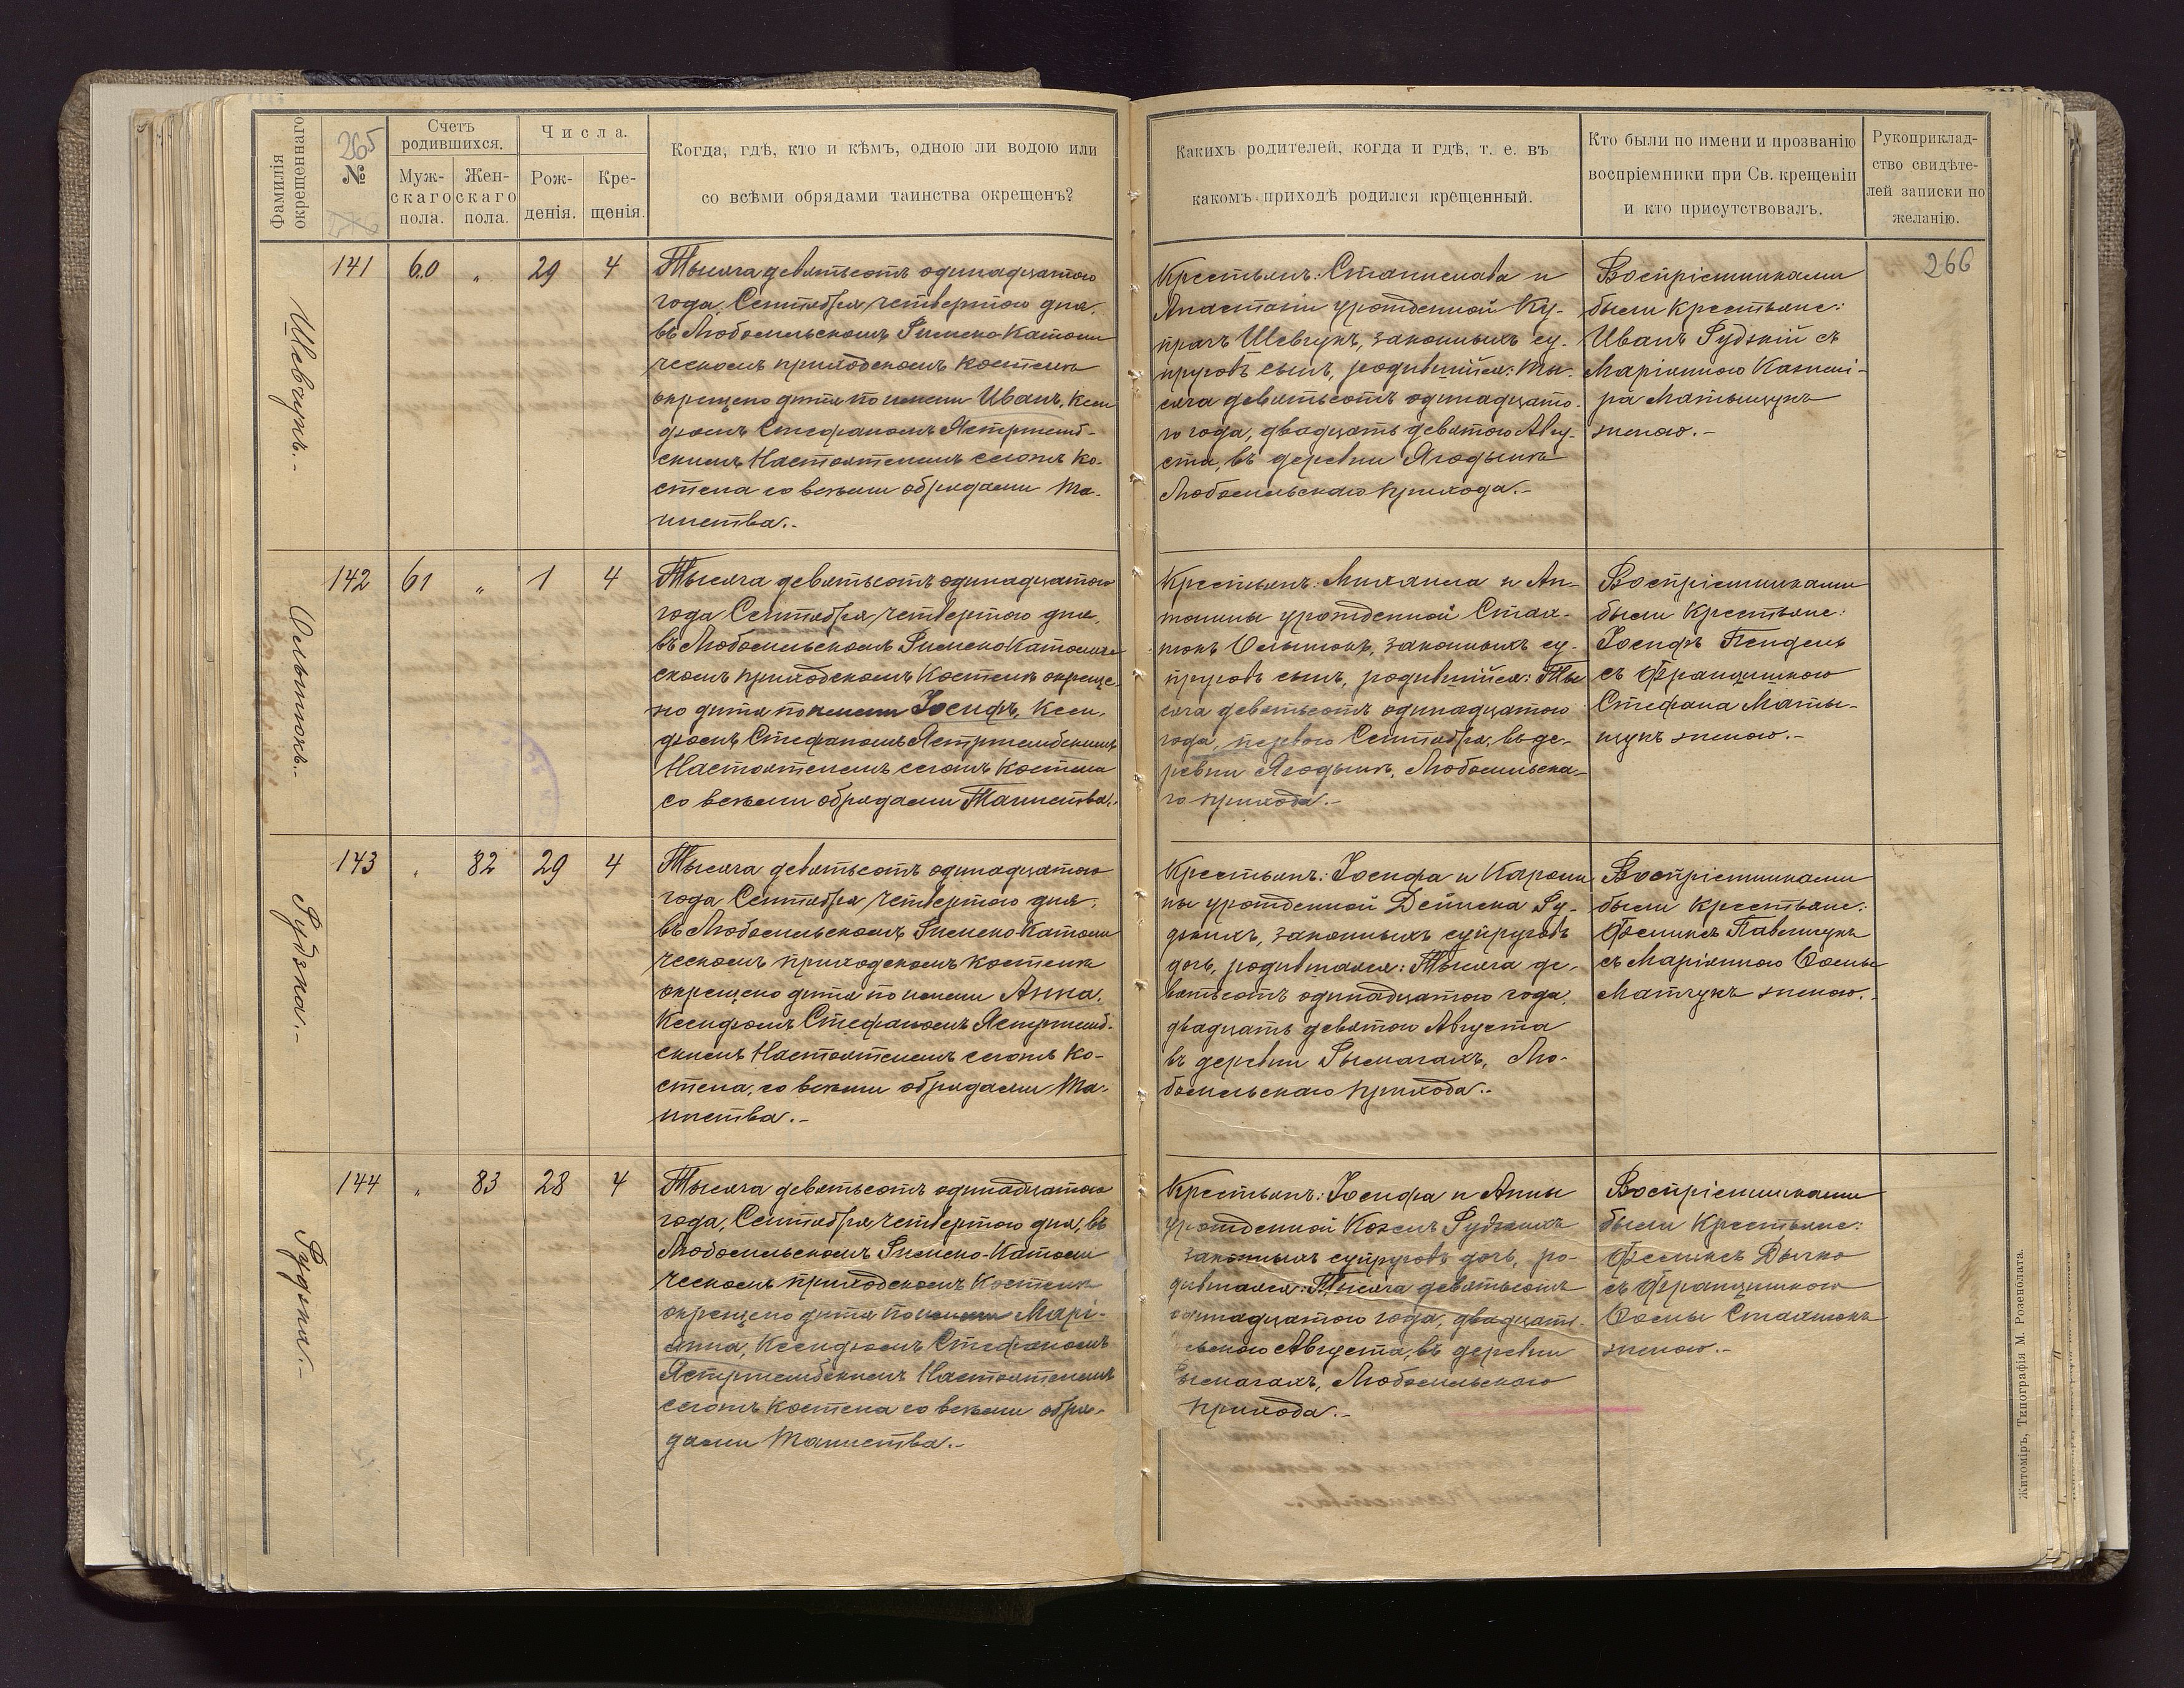 Фамилія окрещеннаго
265
№
Счетъ родившихся.
Муж-
скаго
пола.
Жен-
скаго
пола.
Числа.
Рож-
денія.
Кре-
щенія.
Когда, гдѣ, кто и кѣмъ, одною ли водою или
со всѣми обрядами таинства окрещенъ?
Какихъ родителей, когда и гдѣ, т. е. въ
какомъ приходѣ родился крещенный.
Кто были по имени и прозванію
воспріемники при Св. крещеніи
и кто присутствовалъ.
Рукоприклад-
ство свидѣте-
лей записки по
желанію.
266
Шевчукъ.-
141 60 „ 29 4
Тысяча девятьсотъ одинадцатого
года, Сентября четвертого дня,
въ Любомльскомъ Римско-Католи
ческомъ приходскомъ костелѣ
окрещено дитя по имени Иванъ, Ксен
дзомъ Стефаномъ Ястржемб-
скимъ Настоятелемъ сегожъ ко-
стела со всѣми обрядами та-
инства.-
Крестьянъ: Станислава и
Анастасіи урожденной Ку-
прачъ Шевчукъ, законныхъ су-
пруговъ сынъ, родившійся: ты-
сяча девятьсотъ одинадцато-
го года, двадцать девятого Авгу-
ста, въ деревни Ягодынѣ
Любомльскаго прихода.-
Воспріемниками
были Крестьяне:
Иванъ Рудзкій съ
Маріянною Казимі-
ра Матыщукъ
женою.-
Ольшокъ.-
142 61 „ 1 4
Тысяча девятьсотъ одинадцатого
года Сентября четвертого дня,
въ Любомльскомъ Римско Католиче
скомъ приходскомъ Костелѣ окреще-
но дитя по имени Іосифъ, Ксен-
дзомъ Стефаномъ Ястржембскимъ
Настоятелемъ сегожъ Костела
со всѣми обрядами Таинства.-
Крестьянъ: Михаила и Ан-
тонины урожденной Стах-
нюкъ законныхъ су-
пруговъ сынъ, родившійся: Ты
сяча девятьсотъ одинадцатого
года, первого Сентября, въ де-
ревни Ягодынѣ, Любомльска-
го прихода.-
Воспріемниками
были Крестьяне:
Іосифъ Пендель
съ Францишкою
Стефана Маты-
щукъ женою.-
Рудзка.-
143 „ 82 29 4
Тысяча девятьсотъ одинадцатого
года Сентября четвертого дня,
въ Любомльскомъ Римско-Католи
ческомъ приходскомъ костелѣ
окрещено дитя по имени Анна,
Ксендзомъ Стефаномъ Ястржемб-
скимъ Настоятелемъ сегожъ ко-
стела, со всѣми обрядами та-
инства.-
Крестьянъ: Іосифа и Кароли
ны урожденной Дейнека Ру-
дзкихъ, законныхъ супруговъ
дочь, родившаяся: Тысяча де-
вятьсотъ одинадцатого года,
двадцать девятого Августа
въ деревни Рымачахъ, Лю-
бомльскаго прихода.-
Воспріемниками
были Крестьяне:
Феликсъ Павлищукъ
съ Маріянною Фомы
Матчукъ женою.-
Рудзка.-
144 „ 83 28 4
Тысяча девятьсотъ одинадцатого
года, Сентября четвертого дня, въ
Любомльскомъ Римско-Католи
ческомъ приходскомъ Костелѣ
окрещено дитя по имени Марі-
анна, Ксендзомъ Стефаномъ
Ястржембскимъ Настоятелемъ
сегожъ Костела со всѣми обря-
дами таинства.-
Крестьянъ: Іосифа и Анны
урожденной Козелъ Рудзкихъ
законныхъ супруговъ дочь, ро-
дившаяся: Тысяча девятьсотъ
одинадцатого года, двадцать
восьмого Августа, въ деревни
Рымачахъ, Любомльскаго
прихода.-
Воспріемниками
были Крестьяне:
Феликсъ Дычко
съ Францишкою
Фомы Стахнюкъ
женою.-
Житоміръ, Типографія М. Розенблата.